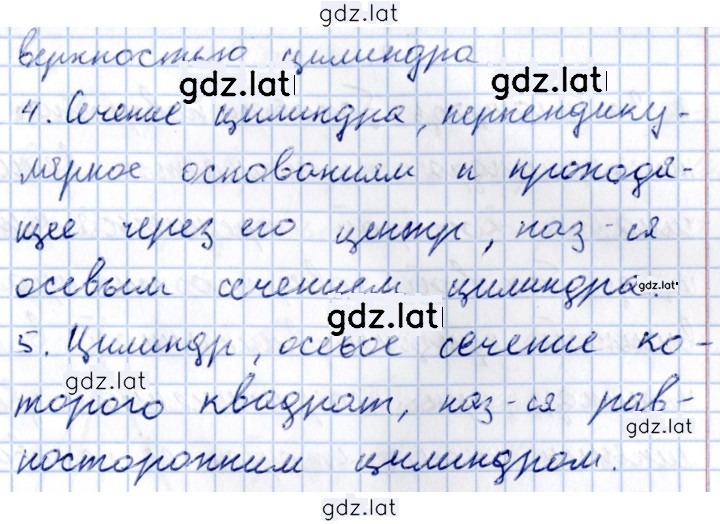 gdz.lat
верхностью цилиндра
gdz.lat gdz.lat
4. Сечение цилиндра, перпендику-
лярное основаниям и проходя-
щее через его центр, наз-ся
осевым сечением цилиндра. gdz.lat
gdz.lat
5. Цилиндр, осевое сечение ко-
gdz.lat
торого квадрат, наз-ся рав-
gdz.lat
носторонним цилиндром.
gdz.lat